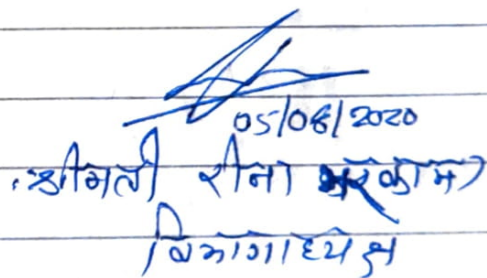 05/08/2020
श्रीमती रीना मरकाम
विभागाध्यक्ष